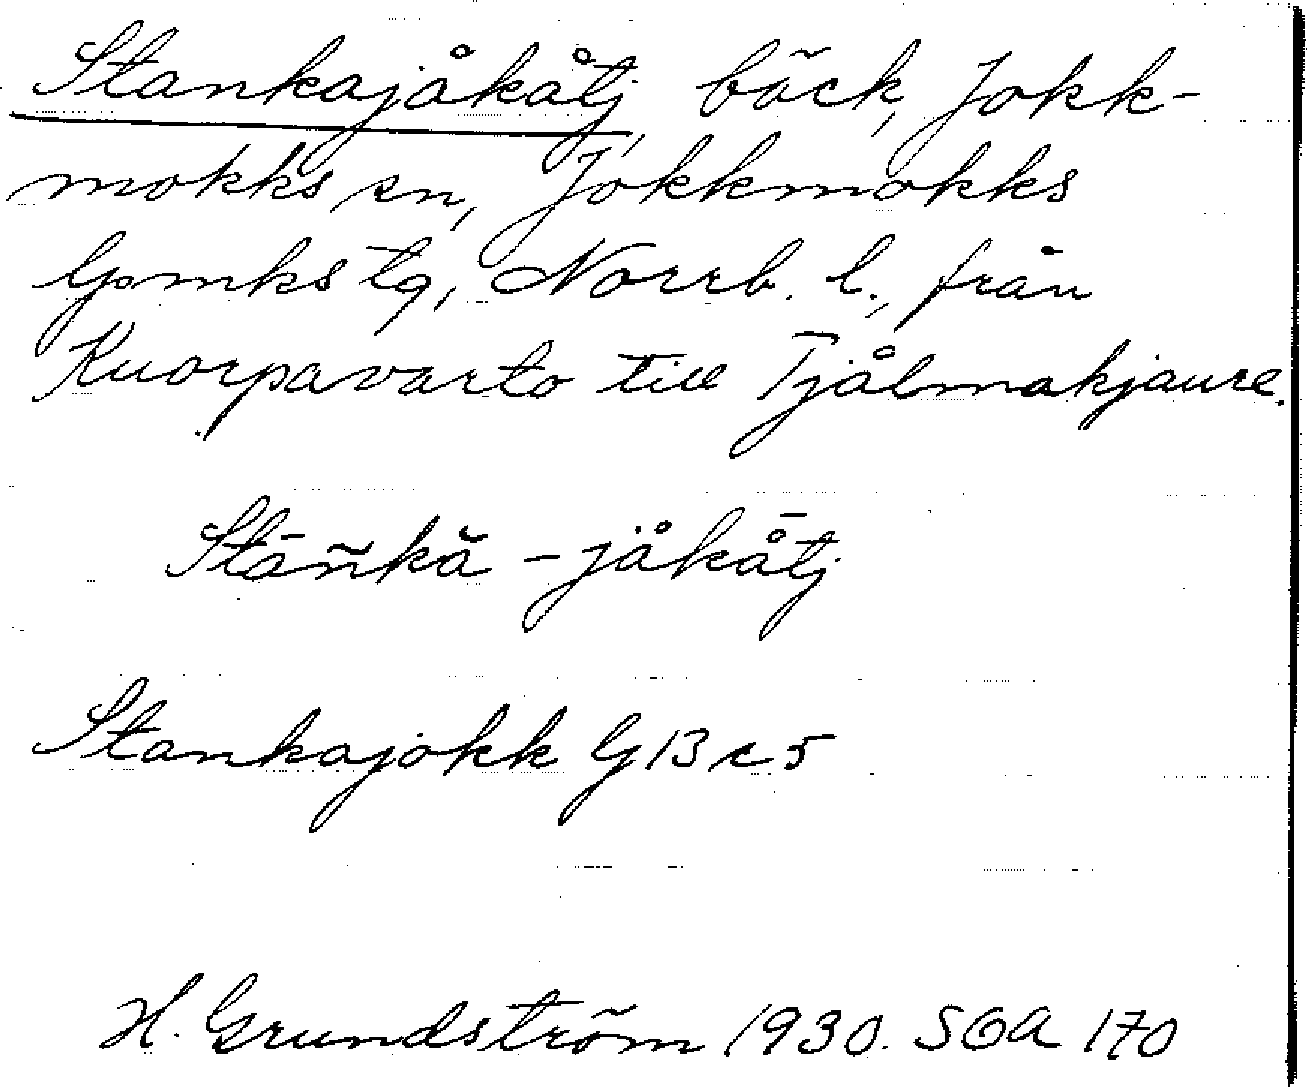 Stankajåkåtj, bäck, Jokk-
mokks sn, Jokkmokks
lpmks tg, Norrb. l., från
Kuorpavarto till Tjålmakjaure.
Stāñkă - jåkå̄tj
Stankajokk G13c5
H. Grundström 1930. SOA 170